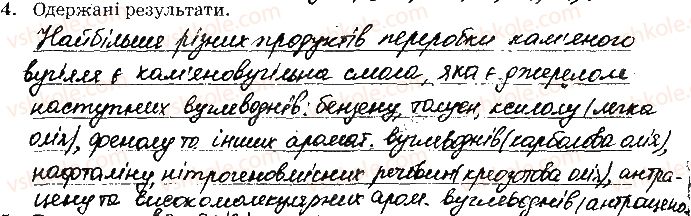 4. Одержані результати.
Найбільше різних продуктів переробки кам'яного
вугілля є кам'яновугільна смола, яка є джерелом
наступних вуглеводнів: бензену, толуен, ксилолу (легка
олія), фенолу та інших аромат. вуглеводнів (карболова олія),
нафталіну, нітрогеновмісних речовин (креозотова олія), антра-
цену та високомолекулярних аром. вуглеводнів (антрацено